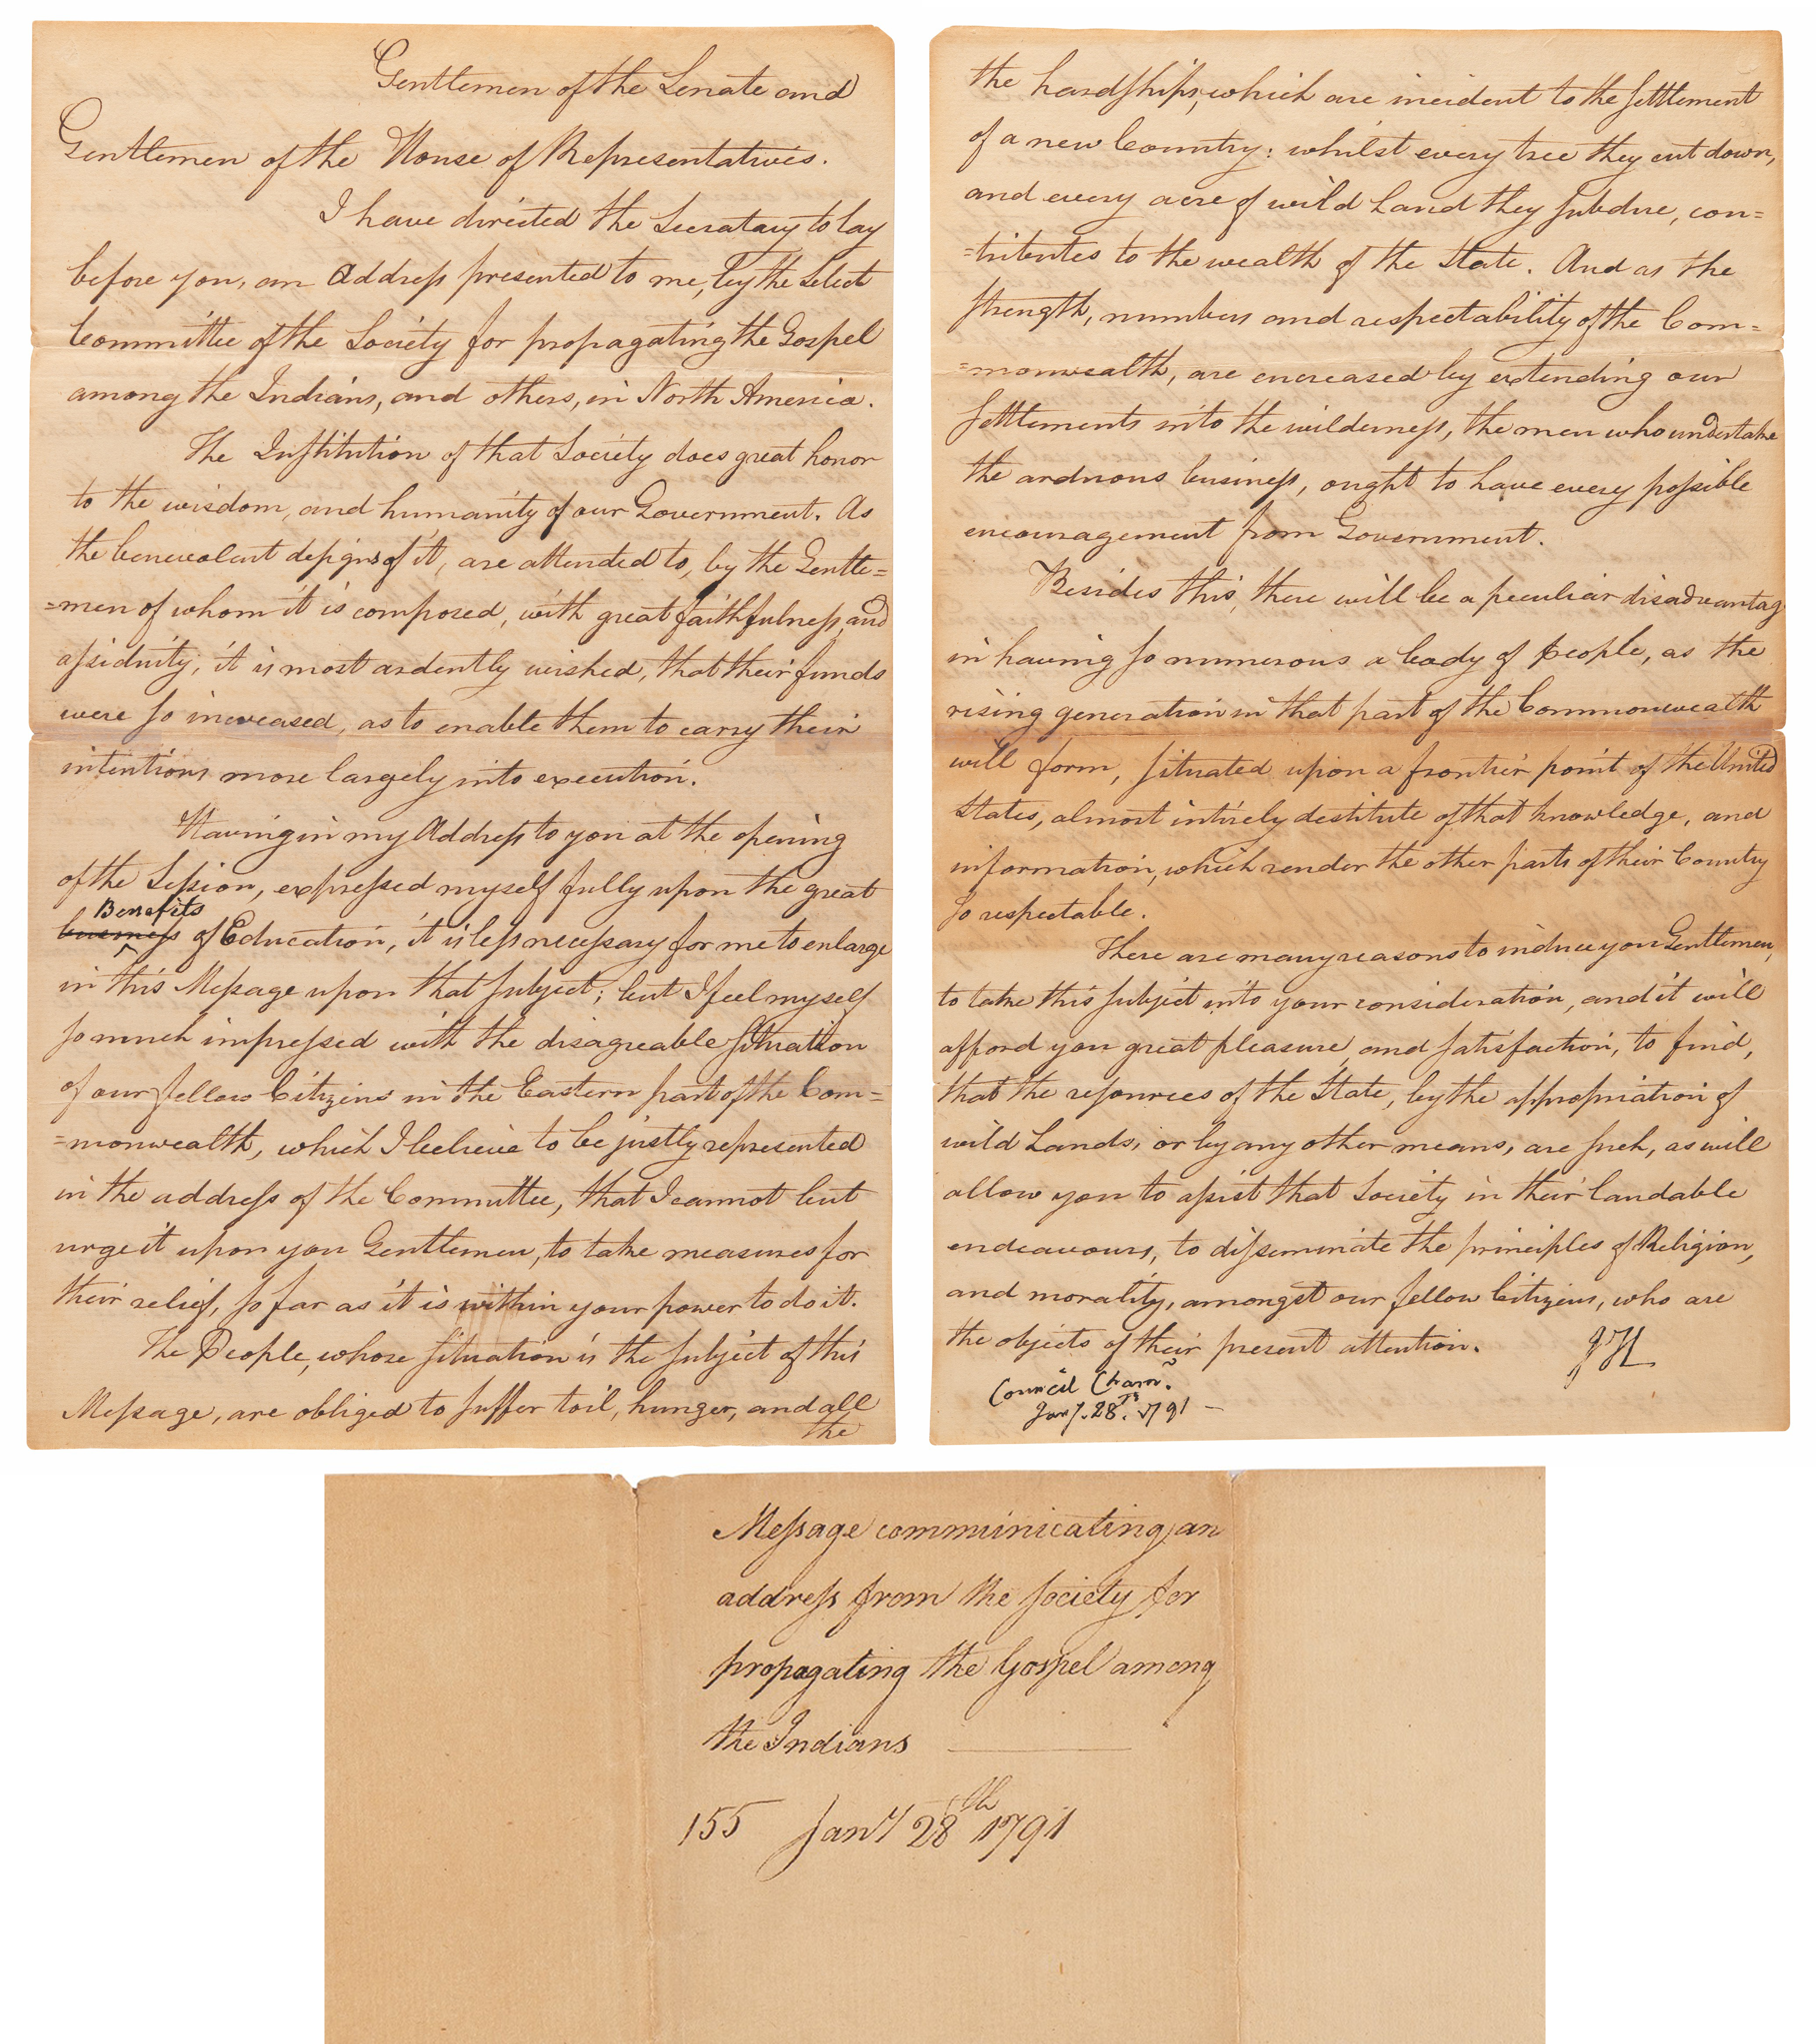 Gentlemen of the Senate and
Gentlemen of the House of Representatives.
I have directed the Secratary to lay
before you, an Address presented to me, by the Select
Committee of the Society for propagating the Gospel
among the Indians, and others, in North America.
The Institution of that Society does great honor
to the wisdom, and humanity of our Government. As
the benevolent designs of it, are attended to, by the Gentle=
=men of whom it is composed, with great faithfulness, and
assiduity; it is most ardently wished, that their funds
were so increased, as to enable them to carry their
intentions more largely into execution.
Having in my Address to you at the opening
of the Session, expressed myself fully upon the great
Benefits
business of Education, it is less necessary for me to enlarge
in this Message upon that subject; but I feel myself
so much impressed with the disagreable situation
of our fellow Citizens in the Eastern part of the Com=
=monwealth, which I believe to be justly represented
in the address of the Committee, that I cannot but
urge it upon you Gentlemen, to take measures for
their relief, so far as it is within your power to do it.
The People, whose situation is the subject of this
Message, are obliged to suffer toil, hunger, and all
the
the hardships, which are incident to the settlement
of a new Country: whilst every tree they cut down,
and every acre of wild Land they subdue, con=
=tributes to the wealth of the State. And as the
strength, numbers and respectability of the Com=
=monwealth, are encreased by extending our
settlements into the wilderness, the men who undertake
the arduous business, ought to have every possible
encouragement from Government.
Besides this, there will be a peculiar disadvantag
in having so numerous a body of people, as the
rising generation in that part of the Commonwealth
will form, situated upon a frontier point of the United
States, almost intirely destitute of that knowledge, and
information, which render the other parts of their Country
so respectable.
There are many reasons to induce you Gentlemen,
to take this subject into your consideration, and it will
afford you great pleasure and satisfaction, to find,
that the resources of the State, by the appropriation of
wild Lands, or by any other means, are such, as will
allow you to assist that Society in their laudable
endeavours, to disseminate the principles of Religion,
and morality, amongst our fellow Citizens, who are
the objects of their present attention.
JH
Council Cham.
Jany. 28. Th 1791 -
Message communicating an
address from the society for
propagating the Gospel among
the Indians
155 Jany 28th 1791